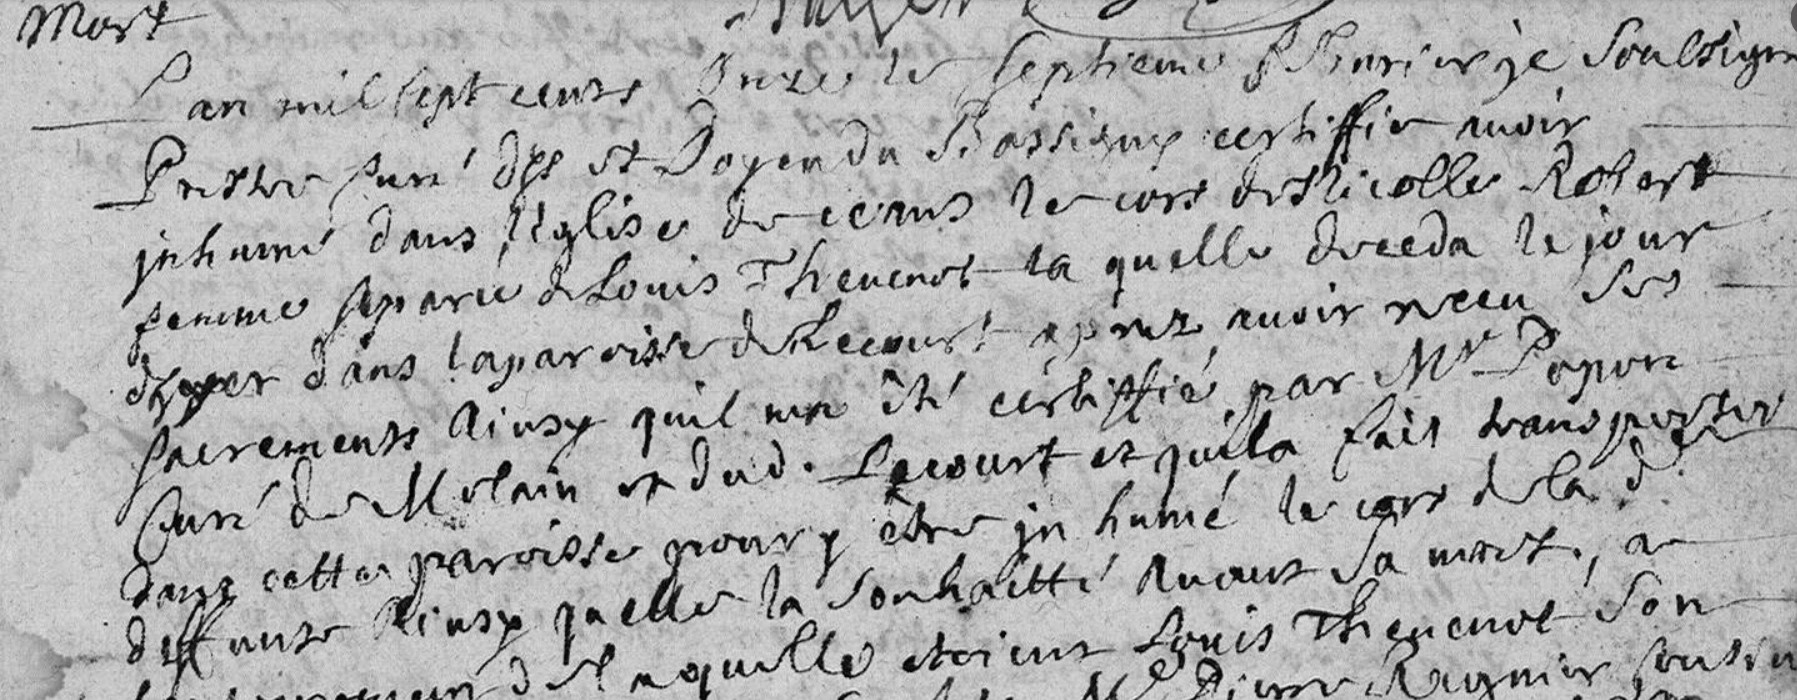 Mort
L an mil sept cents Onze le septieme Fevrier je soubsigné
Prestre Curé d et Doyen du Bassigny certiffie avoir
jnhumé dans l'Eglise de ceans le cors de Nicolle Robert
femme separée de Louis Thevenot la quelle deceda le jour
d'hyer dans la paroisse de Lecourt aprez avoir receu ses
sacrements Ainsy quil m'a été certiffié par Mr Popon
Curé de Molain et dud. Lecourt et quila fait transporter
dans cette paroisse pour y être jnhumé le cors de la d.
deffunte Ainsy quelle la souhaitté Avant sa mort, a
laquelle etoient Louis Thevenot son
Mr Pierre Regnier